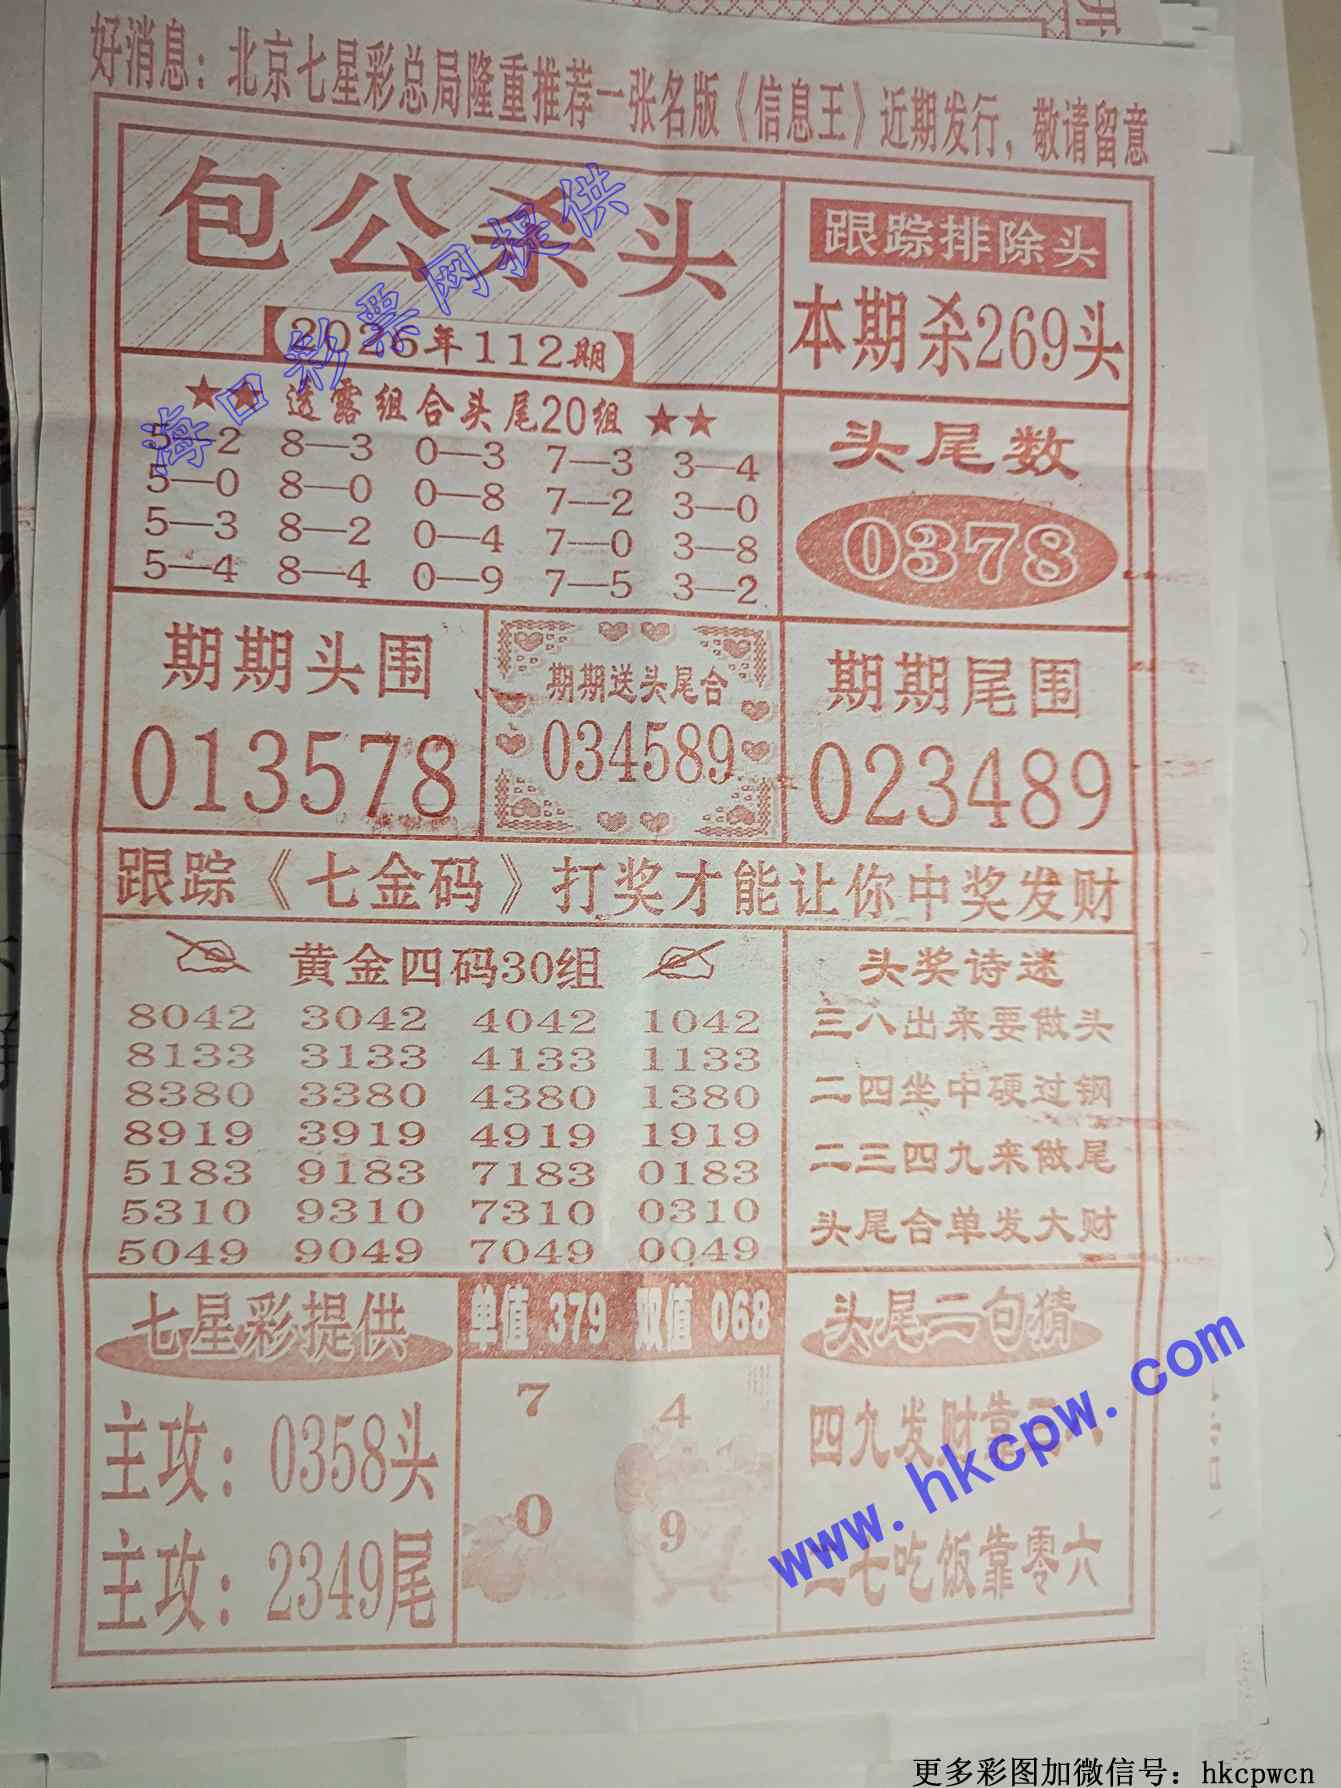 好消息：北京七星彩总局隆重推荐一张名版《信息王》近期发行，敬请留意
包公杀头
【2026年112期】
跟踪排除头
本期杀269头
★★ 透露组合头尾20组 ★★
5—2 8—3 0—3 7—3 3—4
5—0 8—0 0—8 7—2 3—0
5—3 8—2 0—4 7—0 3—8
5—4 8—4 0—9 7—5 3—2
头尾数
0378
期期头围
013578
期期送头尾合
034589
期期尾围
023489
跟踪《七金码》打奖才能让你中奖发财
黄金四码30组
8042 3042 4042 1042
8133 3133 4133 1133
8380 3380 4380 1380
8919 3919 4919 1919
5183 9183 7183 0183
5310 9310 7310 0310
5049 9049 7049 0049
头奖诗迷
三八出来要做头
二四坐中硬过钢
二三四九来做尾
头尾合单发大财
七星彩提供
主攻：0358头
主攻：2349尾
单值 379 双值 068
7 4
0 9
头尾二句猜
四九发财靠
七吃饭靠零六
海口彩票网提供
www.hkcpw.com
更多彩图加微信号：hkcpwcn